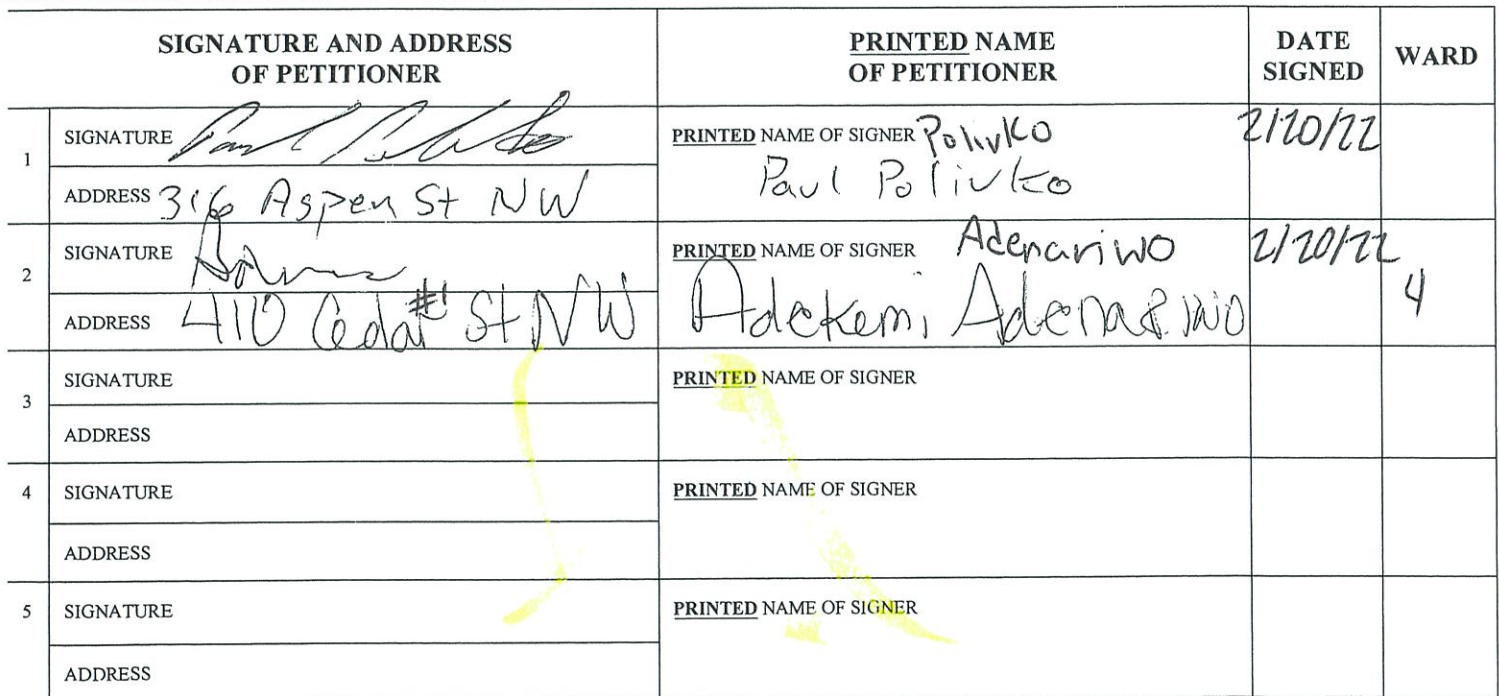 SIGNATURE AND ADDRESS
OF PETITIONER
PRINTED NAME
OF PETITIONER
DATE
SIGNED
WARD
1
SIGNATURE
PRINTED NAME OF SIGNER Polivko
Paul Polivko
2/20/22
ADDRESS 316 Aspen St NW
2
SIGNATURE
PRINTED NAME OF SIGNER Adenariwo
Adekemi Adenariwo
2/20/22
4
ADDRESS 410 Cedar #1 St NW
3
SIGNATURE
PRINTED NAME OF SIGNER
ADDRESS
4
SIGNATURE
PRINTED NAME OF SIGNER
ADDRESS
5
SIGNATURE
PRINTED NAME OF SIGNER
ADDRESS